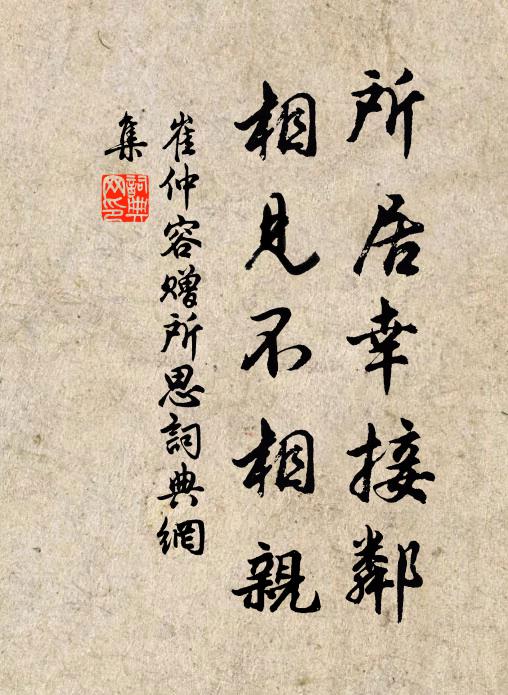 所居幸接鄰
相見不相親
崔仲容贈所思詞典網
集
詞典
网印